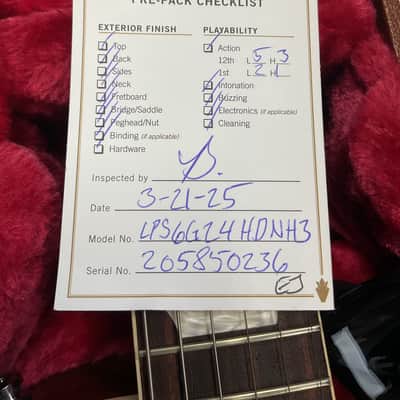 PRE-PACK CHECKLIST
EXTERIOR FINISH
Top
Back
Sides
Neck
Fretboard
Bridge/Saddle
Peghead/Nut
Binding (if applicable)
Hardware
PLAYABILITY
Action
12th L 5 H 3
1st L 2 H L
Intonation
Buzzing
Electronics (if applicable)
Cleaning
Inspected by
Date 3-21-25
Model No. LPS6G24HDNH3
Serial No. 205850236
EJ